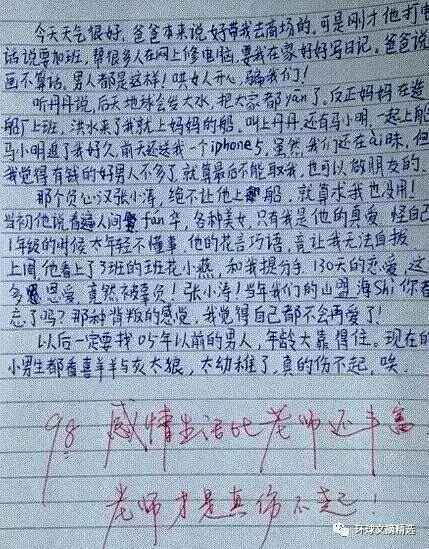 今天天气很好，爸爸本来说好带我去商场的。可是刚才他打电
话说要加班，帮很多人在网上修电脑，要我在家好好写日记。爸爸说
画不算话。男人都是这样！哄女人开心，骗我们！
听丹丹说，后天地球会发大水，把大家都yān了，反正妈妈在造
船厂上班，洪水来了我就上妈妈的船。叫上丹丹，还有马小明，一起上船
马小明追了我好久，前天还送我一个iphone5，虽然我们还在ài昧，但
我觉得有钱的好男人不多了，就算最后不能取我，也可以做朋友的。
那个负心汉张小涛，绝不让他上船，就算求我也没用！
当初他说看遍人间fán华，各种美女，只有我是他的真爱，怪自己
1年级的时候太年轻不懂事，他的花言巧语，竟让我无法自拔
上周他看上了3班的班花小燕，和我提分手，130天的恋爱，这
多恩爱，竟然被辜负！张小涛！当年我们的山盟海Shì你
忘了吗？那种背叛的感觉，我觉得自己都不会再爱了！
以后一定要找05年以前的男人，年龄大靠得住。现在的
小男生都看喜羊羊与灰太狼，太幼稚了，真的伤不起，唉。
98 感情生活比老师还丰富
老师才是真伤不起！
环球文摘精选